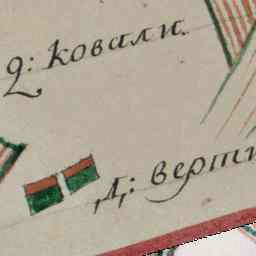 д: ковали
Д: верти